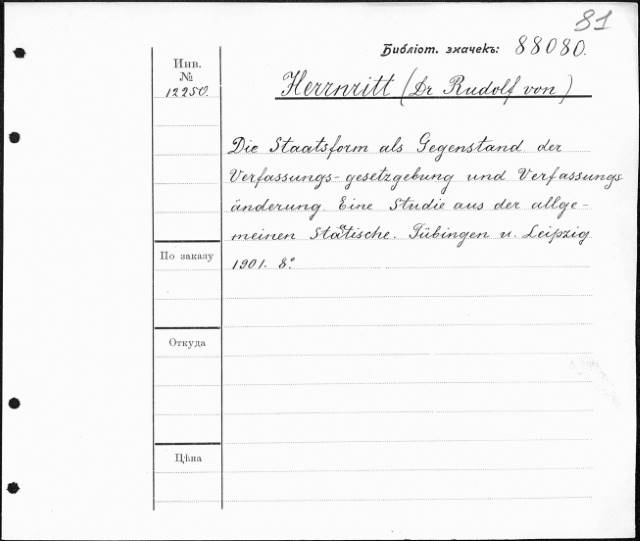 81
Библіот. значекъ: 88080.
Инв.
№
12250.
Herrnritt (Dr Rudolf von)
Die Staatsform als Gegenstand der
Verfassungs-gesetzgebung und Verfassungs
änderung. Eine Studie aus der allge-
meinen Stätische. Tübingen u. Leipzig
1901. 8º
По заказу
Откуда
Цѣна